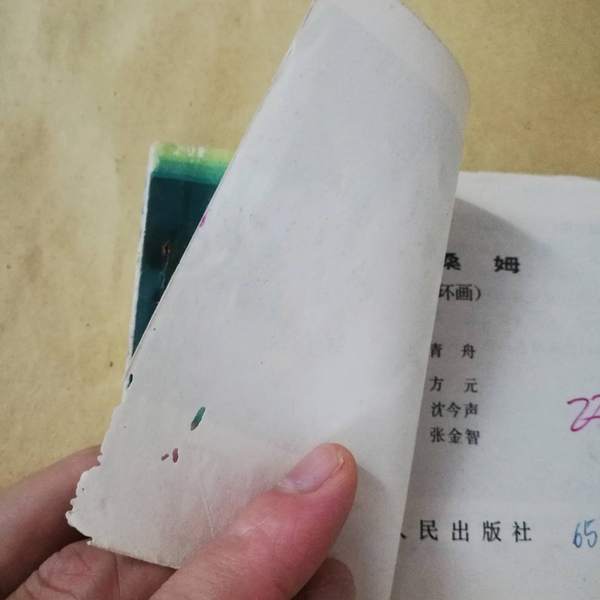 桑 姆
环画）
青 舟
方 元
沈今声
张金智
人民出版社
65